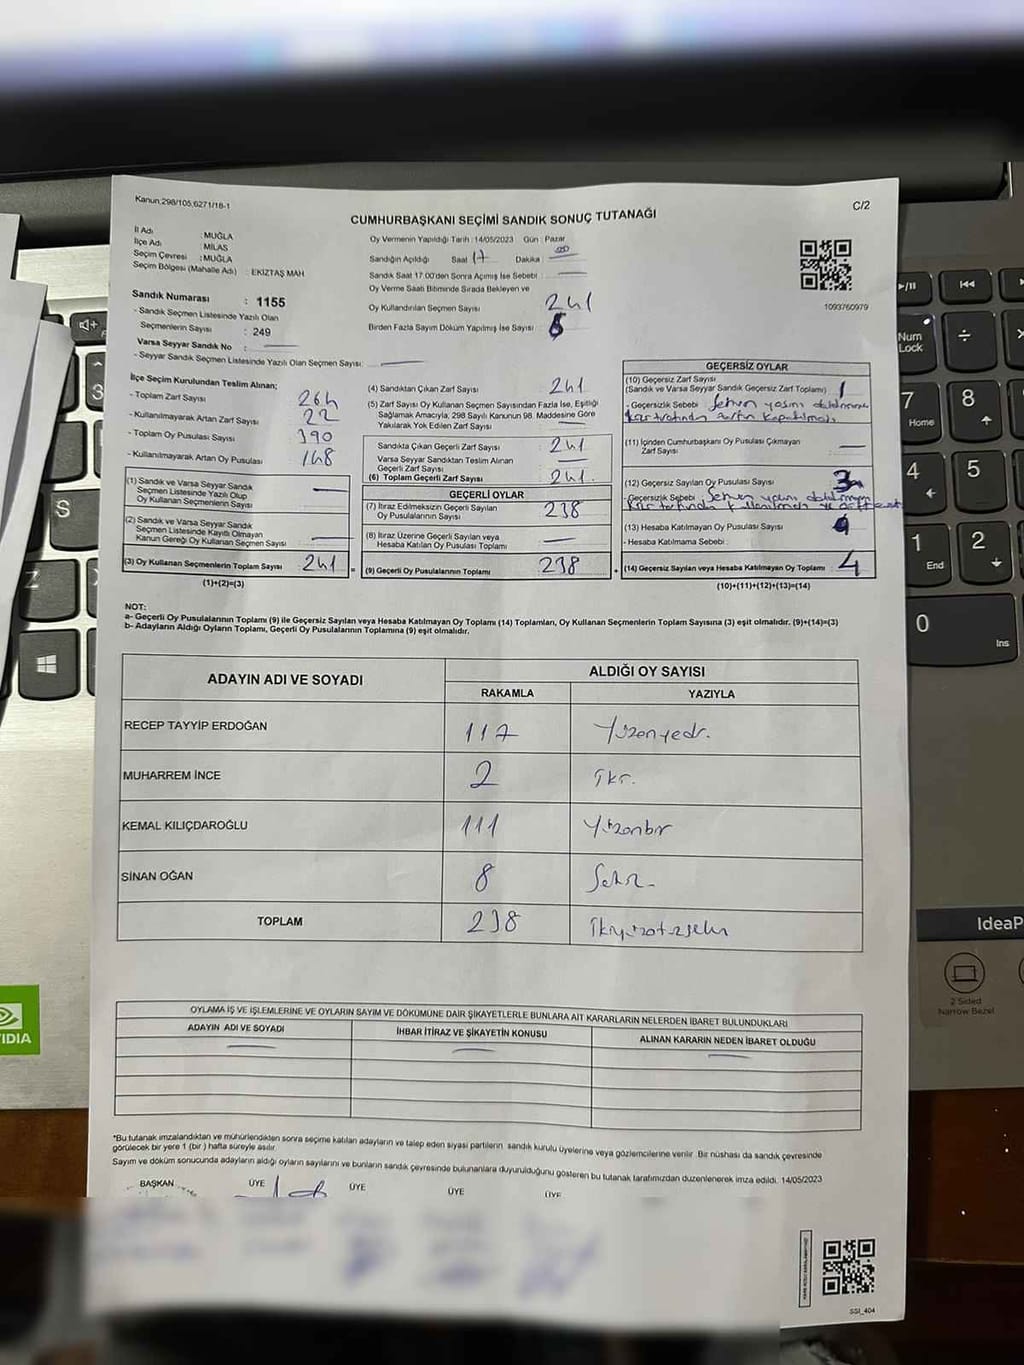 Kanun;298/105,6271/18-1
C/2
CUMHURBAŞKANI SEÇİMİ SANDIK SONUÇ TUTANAĞI
İl Adı : MUĞLA
İlçe Adı : MİLAS
Seçim Çevresi : MUĞLA
Seçim Bölgesi (Mahalle Adı) : EKİZTAŞ MAH
Oy Vermenin Yapıldığı Tarih : 14/05/2023 Gün : Pazar
Sandığın Açıldığı Saat 17 Dakika : 00
Sandık Saat 17.00'den Sonra Açılmış İse Sebebi :
Oy Verme Saati Bitiminde Sırada Bekleyen ve
Oy Kullandırılan Seçmen Sayısı 241
Birden Fazla Sayım Döküm Yapılmış İse Sayısı :
1093760979
Sandık Numarası : 1155
- Sandık Seçmen Listesinde Yazılı Olan
Seçmenlerin Sayısı : 249
Varsa Seyyar Sandık No :
- Seyyar Sandık Seçmen Listesinde Yazılı Olan Seçmen Sayısı:
İlçe Seçim Kurulundan Teslim Alınan;
- Toplam Zarf Sayısı 264
- Kullanılmayarak Artan Zarf Sayısı 22
- Toplam Oy Pusulası Sayısı 390
- Kullanılmayarak Artan Oy Pusulası 148
(1) Sandık ve Varsa Seyyar Sandık
Seçmen Listesinde Yazılı Olup
Oy Kullanan Seçmenlerin Sayısı
(2) Sandık ve Varsa Seyyar Sandık
Seçmen Listesinde Kayıtlı Olmayan
Kanun Gereği Oy Kullanan Seçmen Sayısı
(3) Oy Kullanan Seçmenlerin Toplam Sayısı 241
(1)+(2)=(3)
(4) Sandıktan Çıkan Zarf Sayısı 241
(5) Zarf Sayısı Oy Kullanan Seçmen Sayısından Fazla İse, Eşitliği
Sağlamak Amacıyla, 298 Sayılı Kanunun 98. Maddesine Göre
Yakılarak Yok Edilen Zarf Sayısı
Sandıkta Çıkan Geçerli Zarf Sayısı 241
Varsa Seyyar Sandıktan Teslim Alınan
Geçerli Zarf Sayısı
(6) Toplam Geçerli Zarf Sayısı 241
GEÇERLİ OYLAR
(7) İtiraz Edilmeksizin Geçerli Sayılan
Oy Pusulalarının Sayısı 238
(8) İtiraz Üzerine Geçerli Sayılan veya
Hesaba Katılan Oy Pusulası Toplamı
(9) Geçerli Oy Pusulalarının Toplamı 238
GEÇERSİZ OYLAR
(10) Geçersiz Zarf Sayısı
(Sandık ve Varsa Seyyar Sandık Geçersiz Zarf Toplamı) 1
- Geçersizlik Sebebi
(11) İçinden Cumhurbaşkanı Oy Pusulası Çıkmayan
Zarf Sayısı
(12) Geçersiz Sayılan Oy Pusulası Sayısı 3
- Geçersizlik Sebebi
(13) Hesaba Katılmayan Oy Pusulası Sayısı
- Hesaba Katılmama Sebebi :
(14) Geçersiz Sayılan veya Hesaba Katılmayan Oy Toplamı : 4
(10)+(11)+(12)+(13)=(14)
NOT:
a- Geçerli Oy Pusulalarının Toplamı (9) ile Geçersiz Sayılan veya Hesaba Katılmayan Oy Toplamı (14) Toplamları, Oy Kullanan Seçmenlerin Toplam Sayısına (3) eşit olmalıdır. (9)+(14)=(3)
b- Adayların Aldığı Oyların Toplamı, Geçerli Oy Pusulalarının Toplamına (9) eşit olmalıdır.
ADAYIN ADI VE SOYADI ALDIĞI OY SAYISI
RAKAMLA YAZIYLA
RECEP TAYYİP ERDOĞAN 117 Yüzonyedi.
MUHARREM İNCE 2 iki.
KEMAL KILIÇDAROĞLU 111 Yüzonbir
SİNAN OĞAN 8 Sekiz
TOPLAM 238 ikiyüzotuzsekiz
OYLAMA İŞ VE İŞLEMLERİNE VE OYLARIN SAYIM VE DÖKÜMÜNE DAİR ŞİKAYETLERLE BUNLARA AİT KARARLARIN NELERDEN İBARET BULUNDUKLARI
ADAYIN ADI VE SOYADI İHBAR İTİRAZ VE ŞİKAYETİN KONUSU ALINAN KARARIN NEDEN İBARET OLDUĞU
*Bu tutanak imzalandıktan ve mühürlendikten sonra seçime katılan adayların ve talep eden siyasi partilerin sandık kurulu üyelerine veya gözlemcilerine verilir. Bir nüshası da sandık çevresinde
görülecek bir yere 1 (bir ) hafta süreyle asılır.
Sayım ve döküm sonucunda adayların aldığı oyların sayılarını ve bunların sandık çevresinde bulunanlara duyurulduğunu gösteren bu tutanak tarafımızdan düzenlenerek imza edildi. 14/05/2023
BAŞKAN ÜYE ÜYE ÜYE ÜYE
SSI_404
Num
Lock
7
Home
8
4
5
1
End
2
0
Ins
S
Z
IdeaP
2 Sided
Narrow Bezel
VIDIA